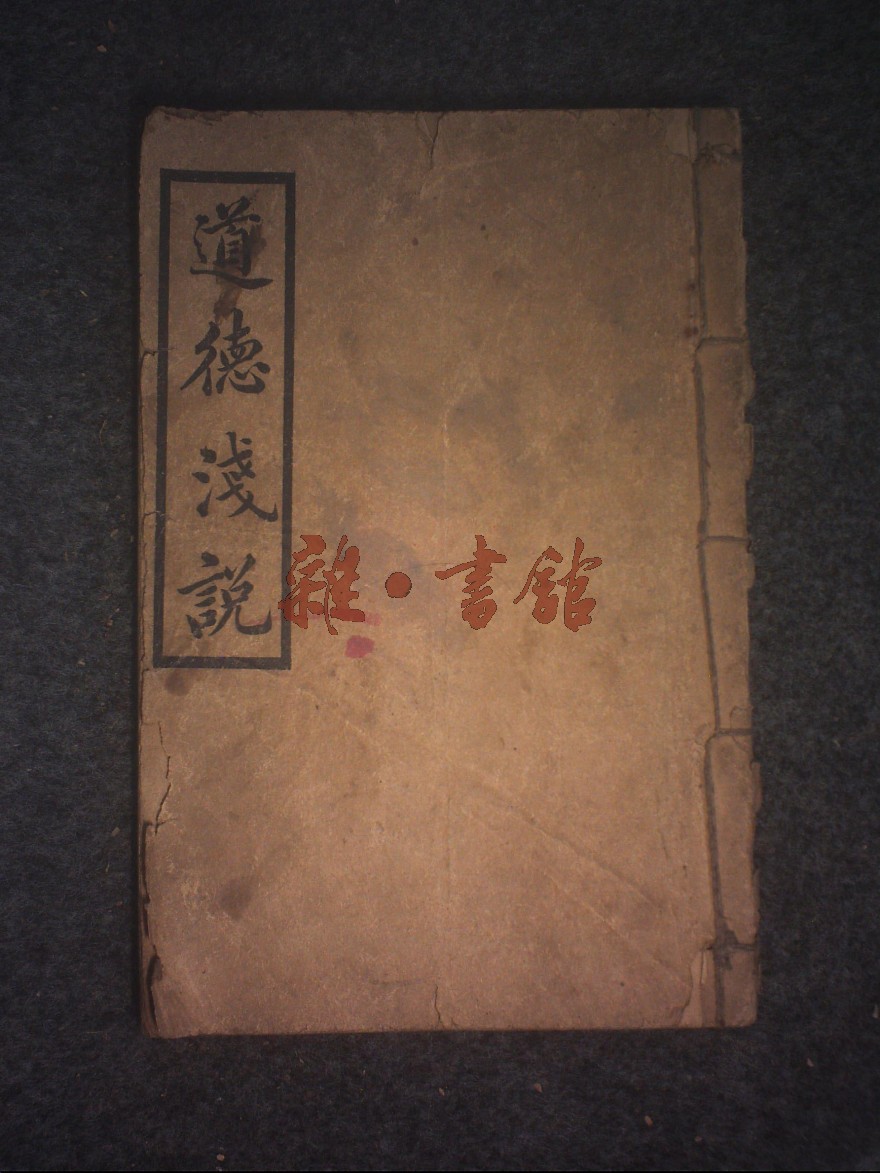 道德淺說
雜·書館